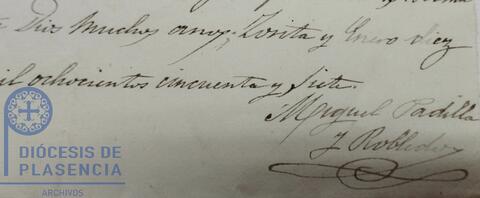 Dios muchos años, Zorita y Enero diez
il ochocientos cincuenta y siete.
Miguel Padilla
y Robledo
DIÓCESIS DE
PLASENCIA
ARCHIVOS